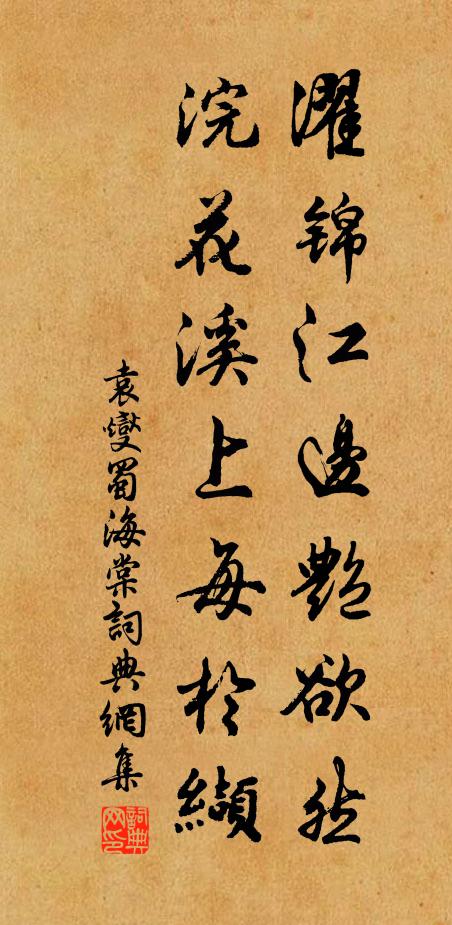 濯錦江邊艷欲然
浣花溪上每於纈
袁燮蜀海棠詞典網集
詞典网印